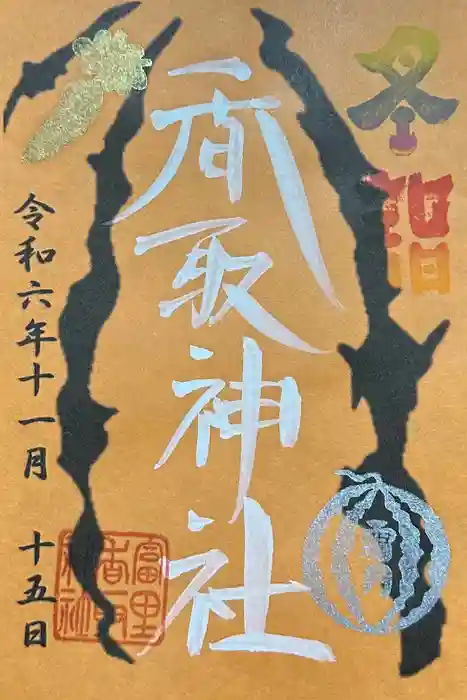 冬詣
香取神社
令和六年十一月 十五日
富里
香取
神社